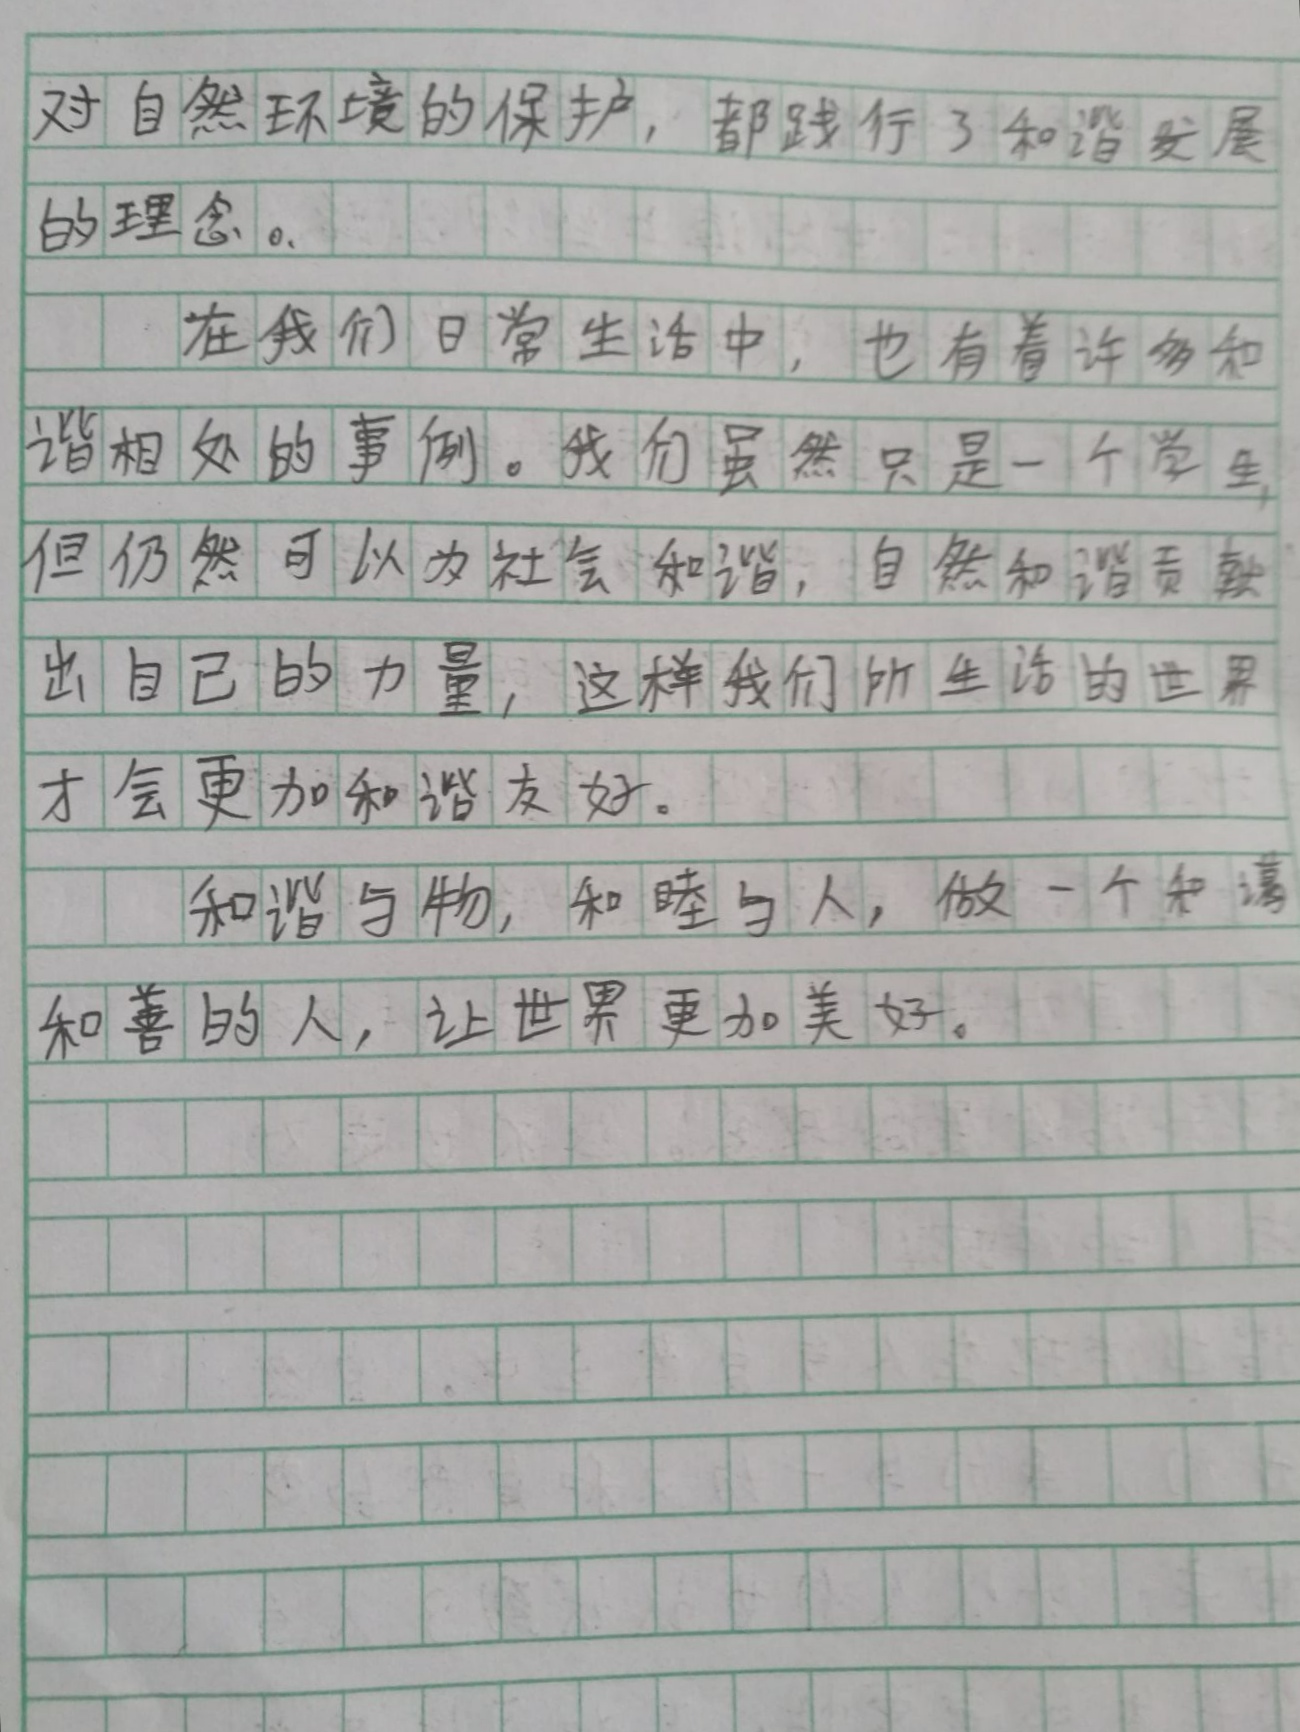 对自然环境的保护，都践行了和谐发展
的理念。
在我们日常生活中，也有着许多和
谐相处的事例。我们虽然只是一个学生，
但仍然可以为社会和谐，自然和谐贡献
出自己的力量，这样我们所生活的世界
才会更加和谐友好。
和谐与物，和睦与人，做一个和蔼
和善的人，让世界更加美好。